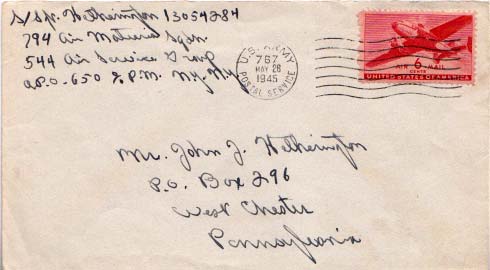 S/Sgt. Hetherington 13054284
794 Air Material Sqdn.
544 Air Service Group
A.P.O. 650 % P.M. N.Y. N.Y.
U.S. ARMY
767
MAY 28
1945
POSTAL SERVICE
AIR 6 MAIL
CENTS
UNITED STATES OF AMERICA
Mr. John J. Hetherington
P.O. Box 296
West Chester
Pennsylvania